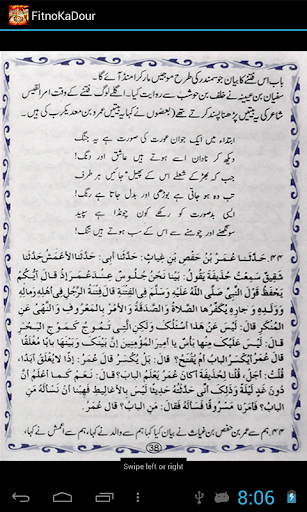 FitnoKaDour
باب اس فتنے کا بیان جو سمندر کی طرح موجیں مار کر امنڈ آئے گا۔
سفیان بن عیینہ نے خلف بن حوشب سے روایت کیا۔ اگلے لوگ فتنے کے وقت امرالقیس
شاعر کی یہ بیتیں پڑھنا پسند کرتے تھے (بعضوں نے کہا یہ بیتیں عمرو بن معدیکرب کی ہیں۔
ابتداء میں ایک جوان عورت کی صورت ہے یہ جنگ
دیکھ کر نادان اسے ہوتے ہیں عاشق اور دنگ!
جب کہ بھڑکے شعلے اس کے پھیل جائیں ہر طرف
تب وہ ہو جاتی ہے بوڑھی اور بدل جاتا ہے رنگ
ایسی بدصورت کو رکھے کون چونڈا ہے سپید
سونگھنے اور چومنے سے اس کے سب ہوتے ہیں تنگ!
۴۴. حَدَّثَنَا عُمَرُ بْنُ حَفْصِ بْنِ غِيَاثٍ: حَدَّثَنَا أَبِي: حَدَّثَنَا الْأَعْمَشُ حَدَّثَنَا
شَقِيقٌ سَمِعْتُ حُذَيْفَةَ يَقُولُ: بَيْنَا نَحْنُ جُلُوسٌ عِنْدَ عُمَرَ إِذْ قَالَ أَيُّكُمْ
يَحْفَظُ قَوْلَ النَّبِيِّ صَلَّى اللَّهُ عَلَيْهِ وَسَلَّمَ فِي الْفِتْنَةِ قَالَ فِتْنَةُ الرَّجُلِ فِي أَهْلِهِ وَمَالِهِ
وَوَلَدِهِ وَجَارِهِ يُكَفِّرُهَا الصَّلَاةُ وَالصَّدَقَةُ وَالْأَمْرُ بِالْمَعْرُوفِ وَالنَّهْيُ عَنِ
الْمُنْكَرِ قَالَ: لَيْسَ عَنْ هَذَا أَسْئَلُكَ وَلَكِنِ الَّتِي تَمُوجُ كَمَوْجِ الْبَحْرِ
قَالَ لَيْسَ عَلَيْكَ مِنْهَا بَأْسٌ يَا أَمِيرَ الْمُؤْمِنِينَ إِنَّ بَيْنَكَ وَبَيْنَهَا بَابًا مُغْلَقًا
قَالَ عُمَرُ أَيُكْسَرُ الْبَابُ أَمْ يُفْتَحُ؟ قَالَ: بَلْ يُكْسَرُ قَالَ عُمَرُ: إِذًا لَا يُغْلَقَ أَبَدًا،
قُلْتُ: أَجَلْ، قُلْنَا لِحُذَيْفَةَ أَكَانَ عُمَرُ يَعْلَمُ الْبَابَ؟ قَالَ: نَعَمْ كَمَا أَعْلَمُ أَنَّ
دُونَ غَدٍ لَيْلَةً وَذَلِكَ أَنِّي حَدَّثْتُهُ حَدِيثًا لَيْسَ بِالْأَغَالِيطِ فَهِبْنَا أَنْ نَسْأَلَهُ مَنِ
الْبَابُ؟ فَأَمَرْنَا مَسْرُوقًا فَسَأَلَهُ فَقَالَ: مَنِ الْبَابُ؟ قَالَ عُمَرُ.
۴۴. ہم سے عمر بن حفص بن غیاث نے بیان کیا کہا ہم سے والد نے کہا، ہم سے اعمش نے کہا،
38
Swipe left or right
8:06